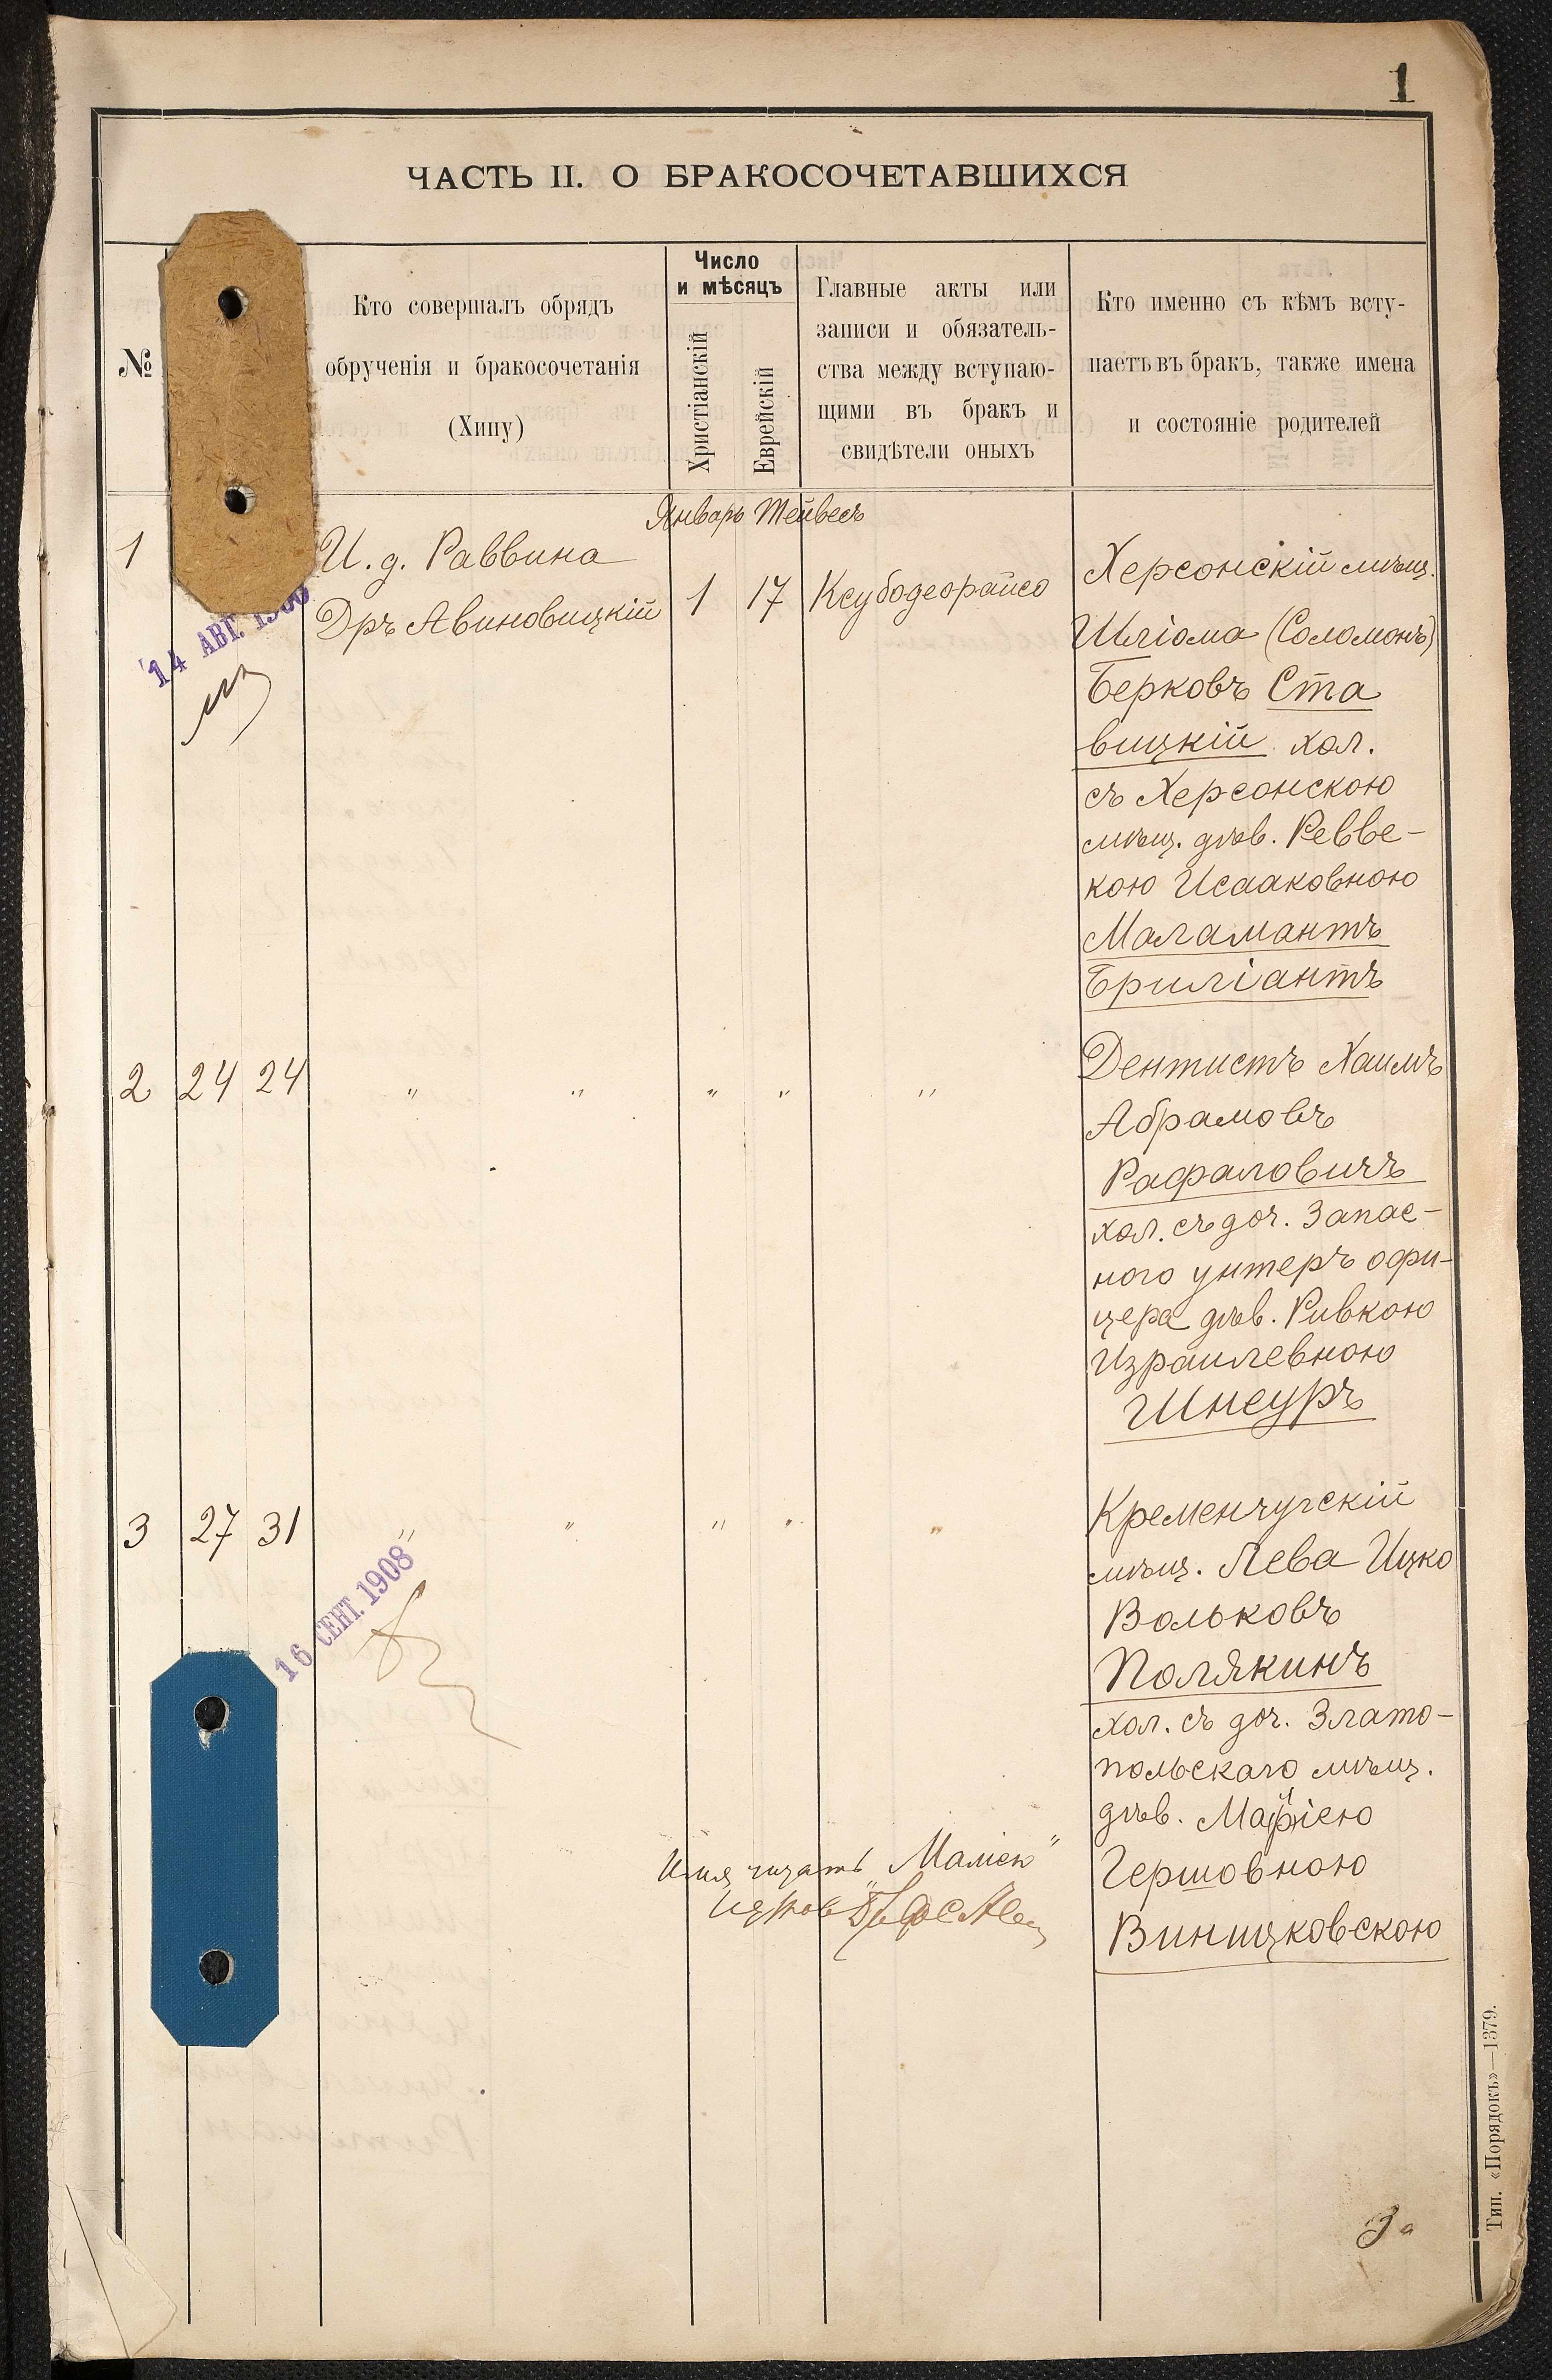 1
ЧАСТЬ II. О БРАКОСОЧЕТАВШИХСЯ
№
Кто совершалъ обрядъ
обрученія и бракосочетанія
(Хипу)
Число
и мѣсяцъ
Христіанскій
Еврейскій
Главные акты или
записи и обязатель-
ства между вступаю-
щими въ бракъ и
свидѣтели оныхъ
Кто именно съ кѣмъ всту-
паетъ въ бракъ, также имена
и состояніе родителей
Январь Тейвесъ
1
И. д. Раввина
Дръ Авиновицкій
1 17
Ксубодеорайсо
14 АВГ.
Херсонскій мѣщ.
Шліома (Соломонъ)
Берковъ Ста
вицкій хол.
съ Херсонскою
мѣщ. дѣв. Ревве-
кою Исааковною
Маламантъ
Бриліантъ
2 24 24 " " " " "
Дентистъ Хаимъ
Абрамовъ
Рафаловичъ
хол. съ доч. Запас-
ного унтеръ офи-
цера дѣв. Ривкою
Израилевною
Шнеуръ
3 27 31 " " " " "
16 СЕНТ. 1908
Кременчугскій
мѣщ. Лева Ицко
Вольковъ
Полякинъ
хол. съ доч. Злато-
польскаго мѣщ.
дѣв.
Гершовною
Виницковскою
Имя читать „Маліею"
3а
Тип. «Порядокъ»—1379.